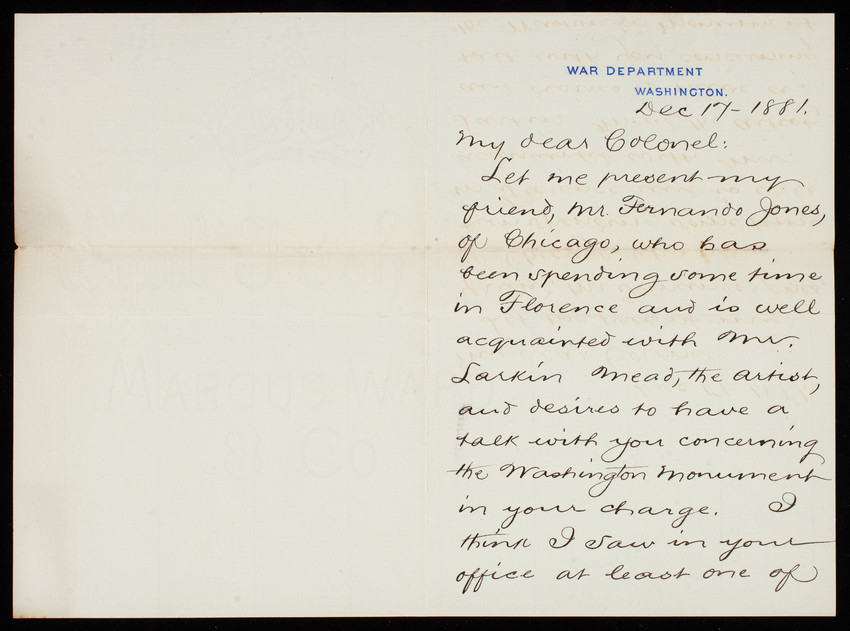 WAR DEPARTMENT
WASHINGTON.
Dec 17- 1881.
My dear Colonel:
Let me present my
friend, Mr. Fernando Jones,
of Chicago, who has
been spending some time
in Florence and is well
acquainted with Mr.
Larkin Mead, the artist,
and desires to have a
talk with you concerning
the Washington Monument
in your charge. I
think I saw in your
office at least one of
MARCUS WARD
& Co